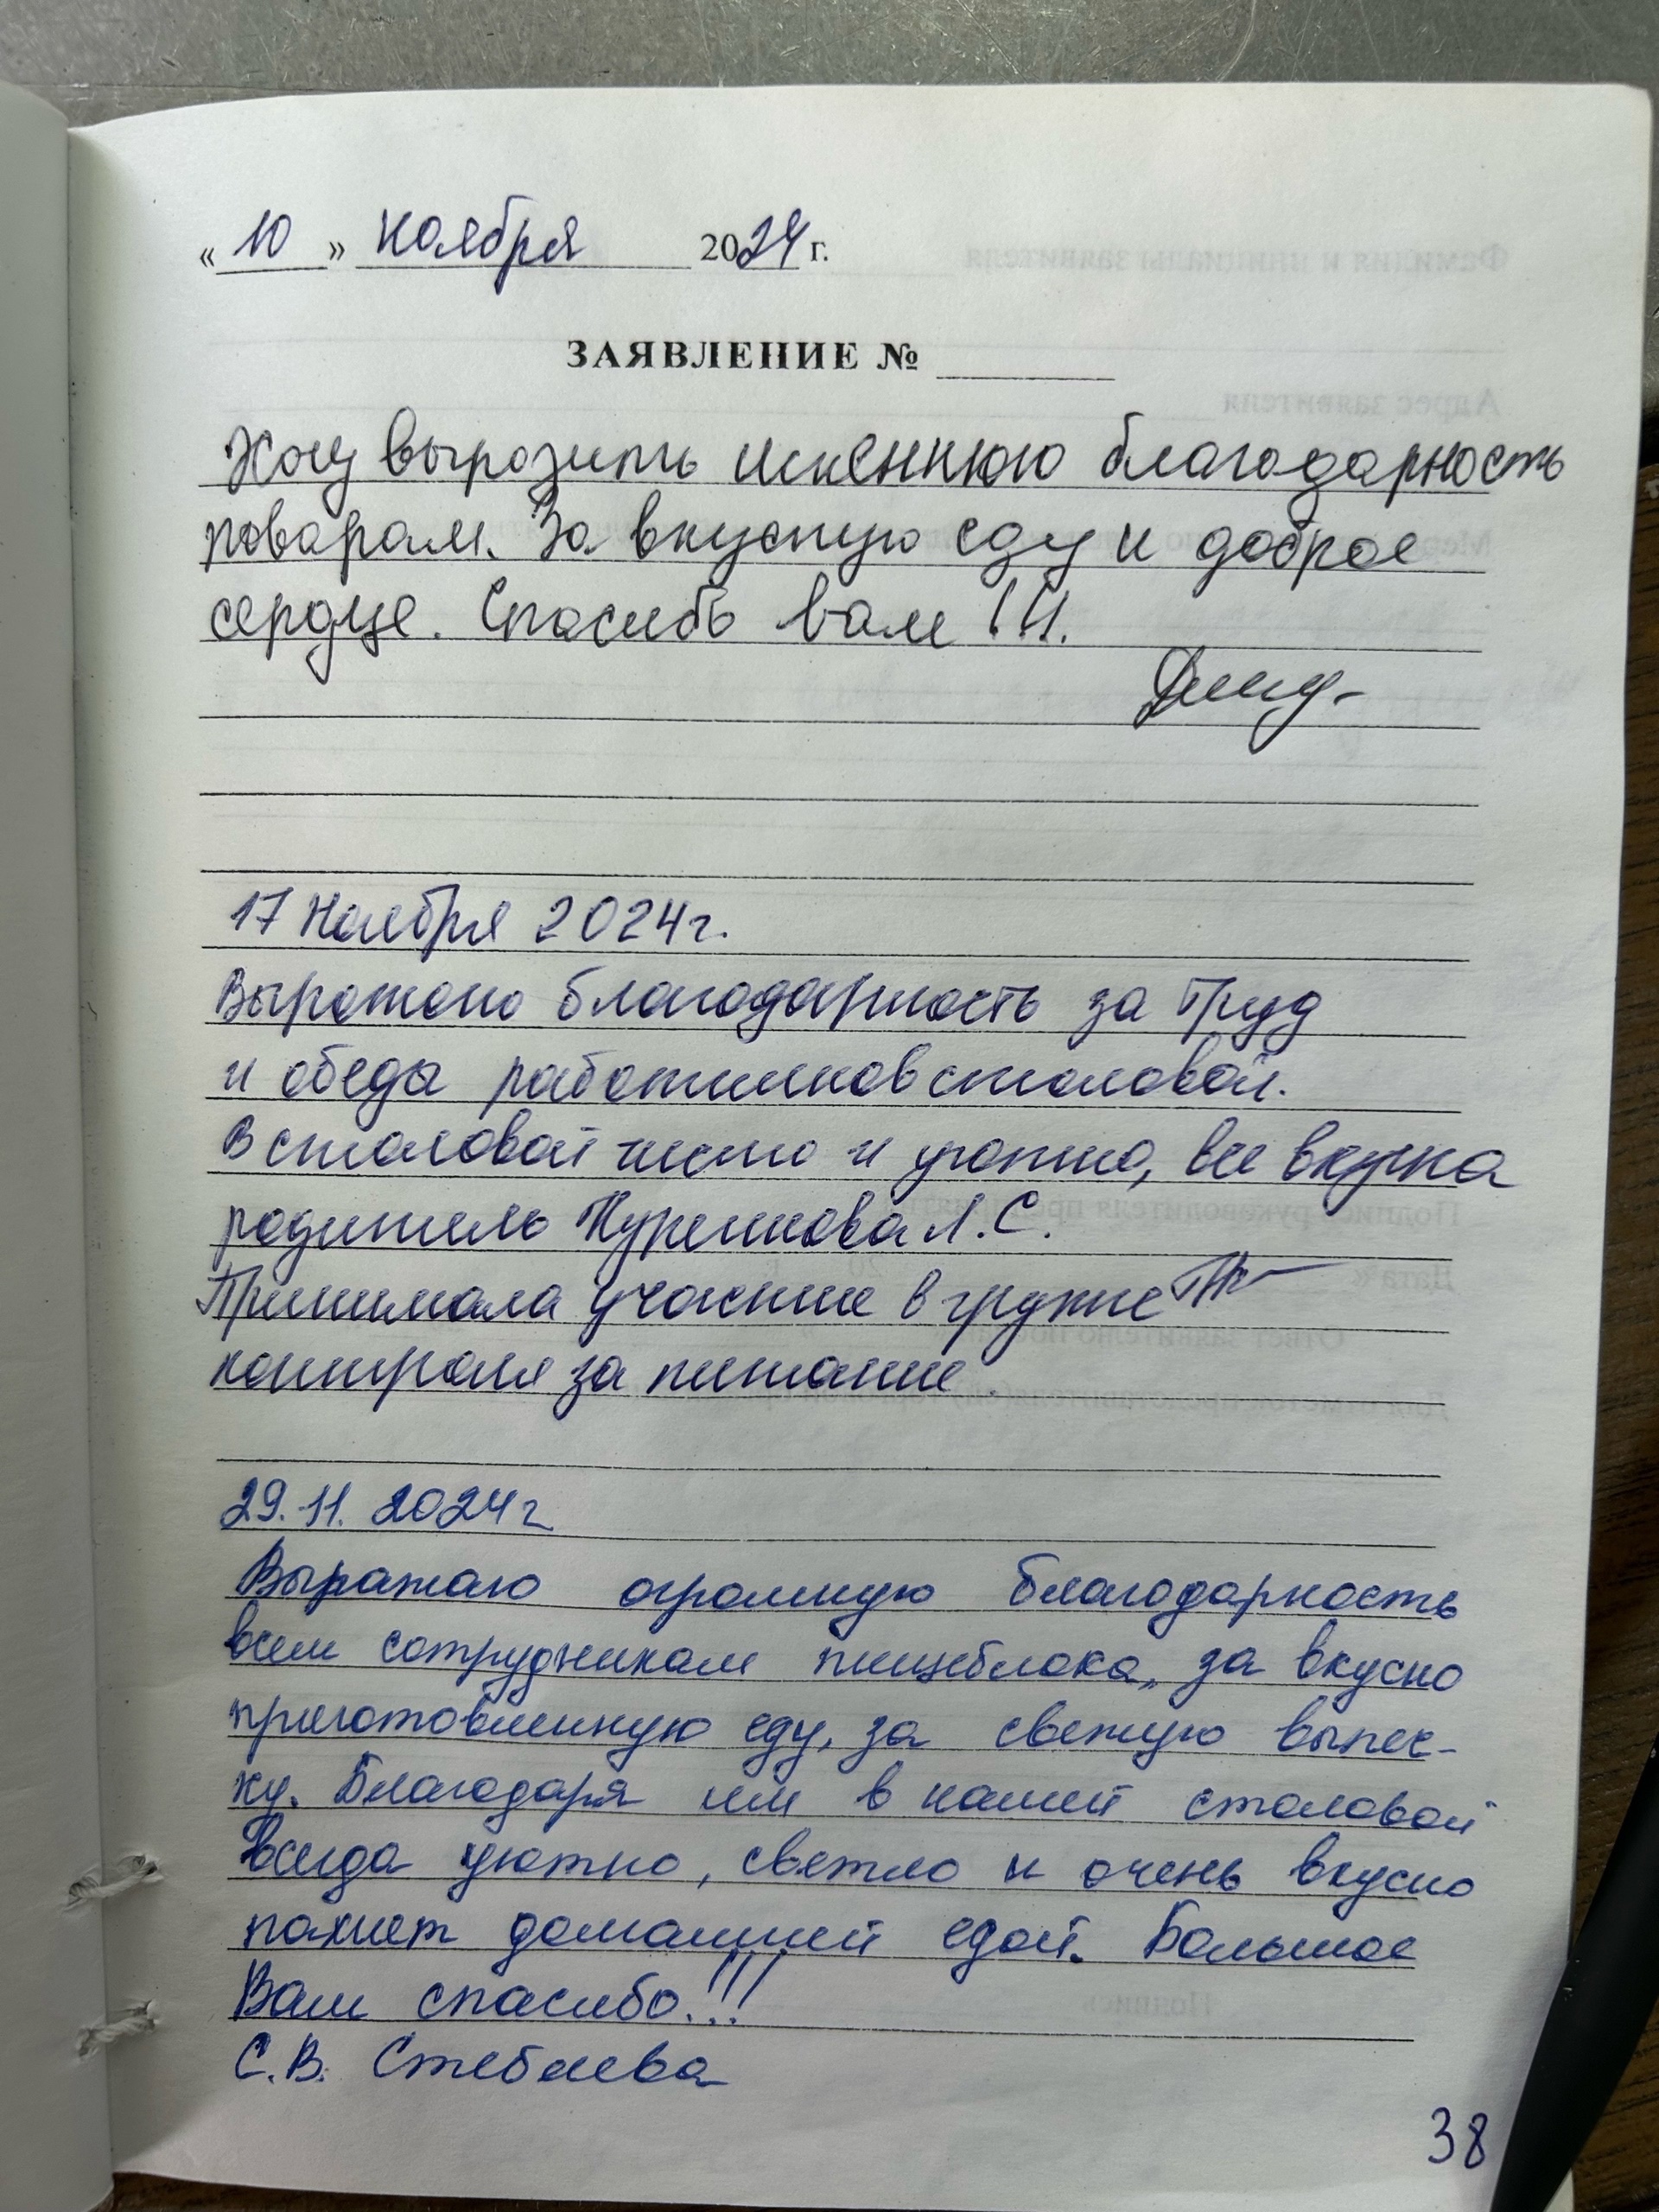 « 10 » ноября 2024 г.
ЗАЯВЛЕНИЕ №
Хочу вырозить искеннюю благодарность
поварам. За вкусную еду и доброе
сердце. Спасибо вам !!!.
17 Ноября 2024г.
Выражаю благодарность за Труд
и обеды работников столовой.
В столовой чисто и уютно, все вкусна
родитель Л.С.
Принимала участие в группе
контроля за питание.
29.11.2024г
Выражаю огромную благодарность
всем сотрудникам пищеблока, за вкусно
приготовленную еду, за свежую выпеч-
ку. Благодаря им в нашей столовой
всегда уютно, светло и очень вкусно
пахнет домашней едой. Большое
Вам спасибо!!!
С.В. Стеблева
38